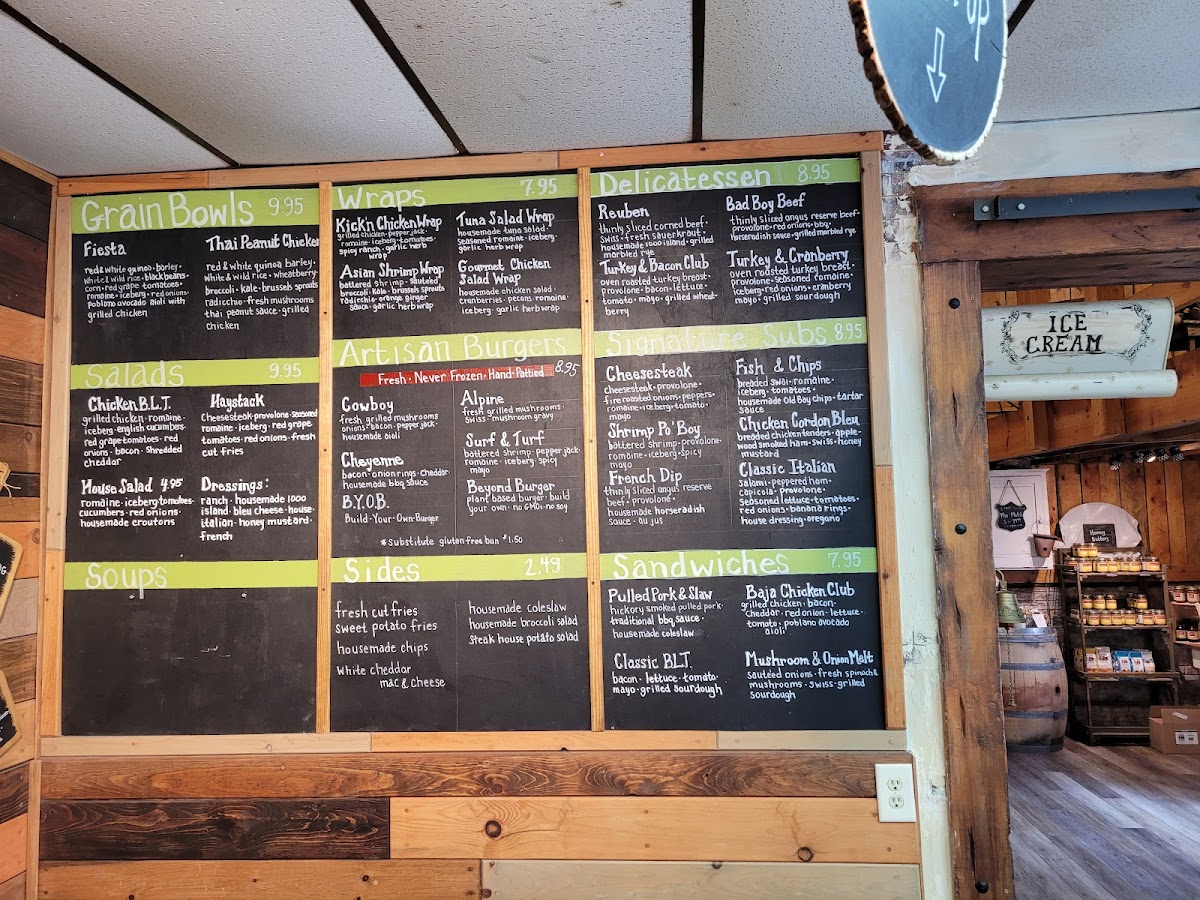 up
Grain Bowls 9.95
Fiesta
red & white quinoa · barley ·
white & wild rice · black beans ·
corn · red grape tomatoes ·
romaine · iceberg · red onions ·
poblano avocado aioli with
grilled chicken
Thai Peanut Chicken
red & white quinoa barley ·
white & wild rice · wheatberry ·
broccoli · kale · brussels sprouts
radicchio · fresh mushrooms
thai peanut sauce · grilled
chicken
Salads 9.95
Chicken B.L.T.
grilled chicken · romaine ·
iceberg · english cucumbers ·
red grape tomatoes · red
onions · bacon · shredded
cheddar
Haystack
Cheesesteak · provolone · seasoned
romaine · iceberg · red grape
tomatoes · red onions · fresh
cut fries
House Salad 4.95
romaine · iceberg · tomatoes ·
cucumbers · red onions ·
housemade croutons
Dressings:
ranch · housemade 1000
island · bleu cheese · house ·
italian · honey mustard ·
french
Soups
Wraps 7.95
Kick'n Chicken Wrap
grilled chicken · pepper jack ·
romaine · iceberg · tomatoes ·
spicy ranch · garlic herb
wrap
Asian Shrimp Wrap
battered shrimp · sautéed
broccoli · kale · brussels sprouts
radicchio · orange ginger
sauce · garlic herb wrap
Tuna Salad Wrap
housemade tuna salad ·
seasoned romaine · iceberg ·
garlic herb wrap
Gourmet Chicken
Salad Wrap
housemade chicken salad ·
cranberries · pecans · romaine ·
iceberg · garlic herb wrap
Artisan Burgers
8.95
Fresh · Never Frozen · Hand · Pattied
Cowboy
fresh grilled mushrooms
onions · bacon · pepper jack ·
housemade aioli
Cheyenne
bacon · onion rings · cheddar ·
housemade bbq sauce
B.Y.O.B.
Build · Your · Own · Burger
Alpine
fresh grilled mushrooms ·
swiss · mushroom gravy
Surf & Turf
battered shrimp · pepper jack ·
romaine · iceberg · spicy
mayo
Beyond Burger
plant based burger · build
your own · no GMOs · no soy
*substitute gluten-free bun $1.50
Sides 2.49
fresh cut fries
sweet potato fries
housemade chips
white cheddar
mac & cheese
housemade coleslaw
housemade broccoli salad
steak house potato salad
Delicatessen 8.95
Reuben
thinly sliced corned beef ·
swiss · fresh sauerkraut ·
housemade 1000 island · grilled
marbled rye
Turkey & Bacon Club
oven roasted turkey breast ·
provolone · bacon · lettuce ·
tomato · mayo · grilled wheat-
berry
Bad Boy Beef
thinly sliced angus reserve beef ·
provolone · red onions · bbq ·
horseradish sauce · grilled marbled rye
Turkey & Cranberry
oven roasted turkey breast ·
provolone · seasoned romaine ·
iceberg · red onions · cranberry
mayo · grilled sourdough
Signature Subs 8.95
Cheesesteak
cheesesteak · provolone ·
fire roasted onions · peppers ·
romaine · iceberg · tomato ·
mayo
Shrimp Po' Boy
battered shrimp · provolone ·
romaine · iceberg · spicy
mayo
French Dip
thinly sliced angus reserve
beef · provolone ·
housemade horseradish
sauce · au jus
Fish & Chips
breaded swai · romaine ·
iceberg · tomatoes ·
housemade Old Bay chips · tartar
sauce
Chicken Cordon Bleu
breaded chicken tenders · apple-
wood smoked ham · swiss · honey
mustard
Classic Italian
salami · peppered ham ·
capicola · provolone ·
seasoned lettuce · tomatoes ·
red onions · banana rings ·
house dressing · oregano
Sandwiches 7.95
Pulled Pork & Slaw
hickory smoked pulled pork ·
traditional bbq sauce ·
housemade coleslaw
Classic BLT.
bacon · lettuce · tomato ·
mayo · grilled sourdough
Baja Chicken Club
grilled chicken · bacon ·
cheddar · red onion · lettuce ·
tomato · poblano avocado
aioli
Mushroom & Onion Melt
sautéed onions · fresh spinach &
mushrooms · swiss · grilled
sourdough
ICE
CREAM